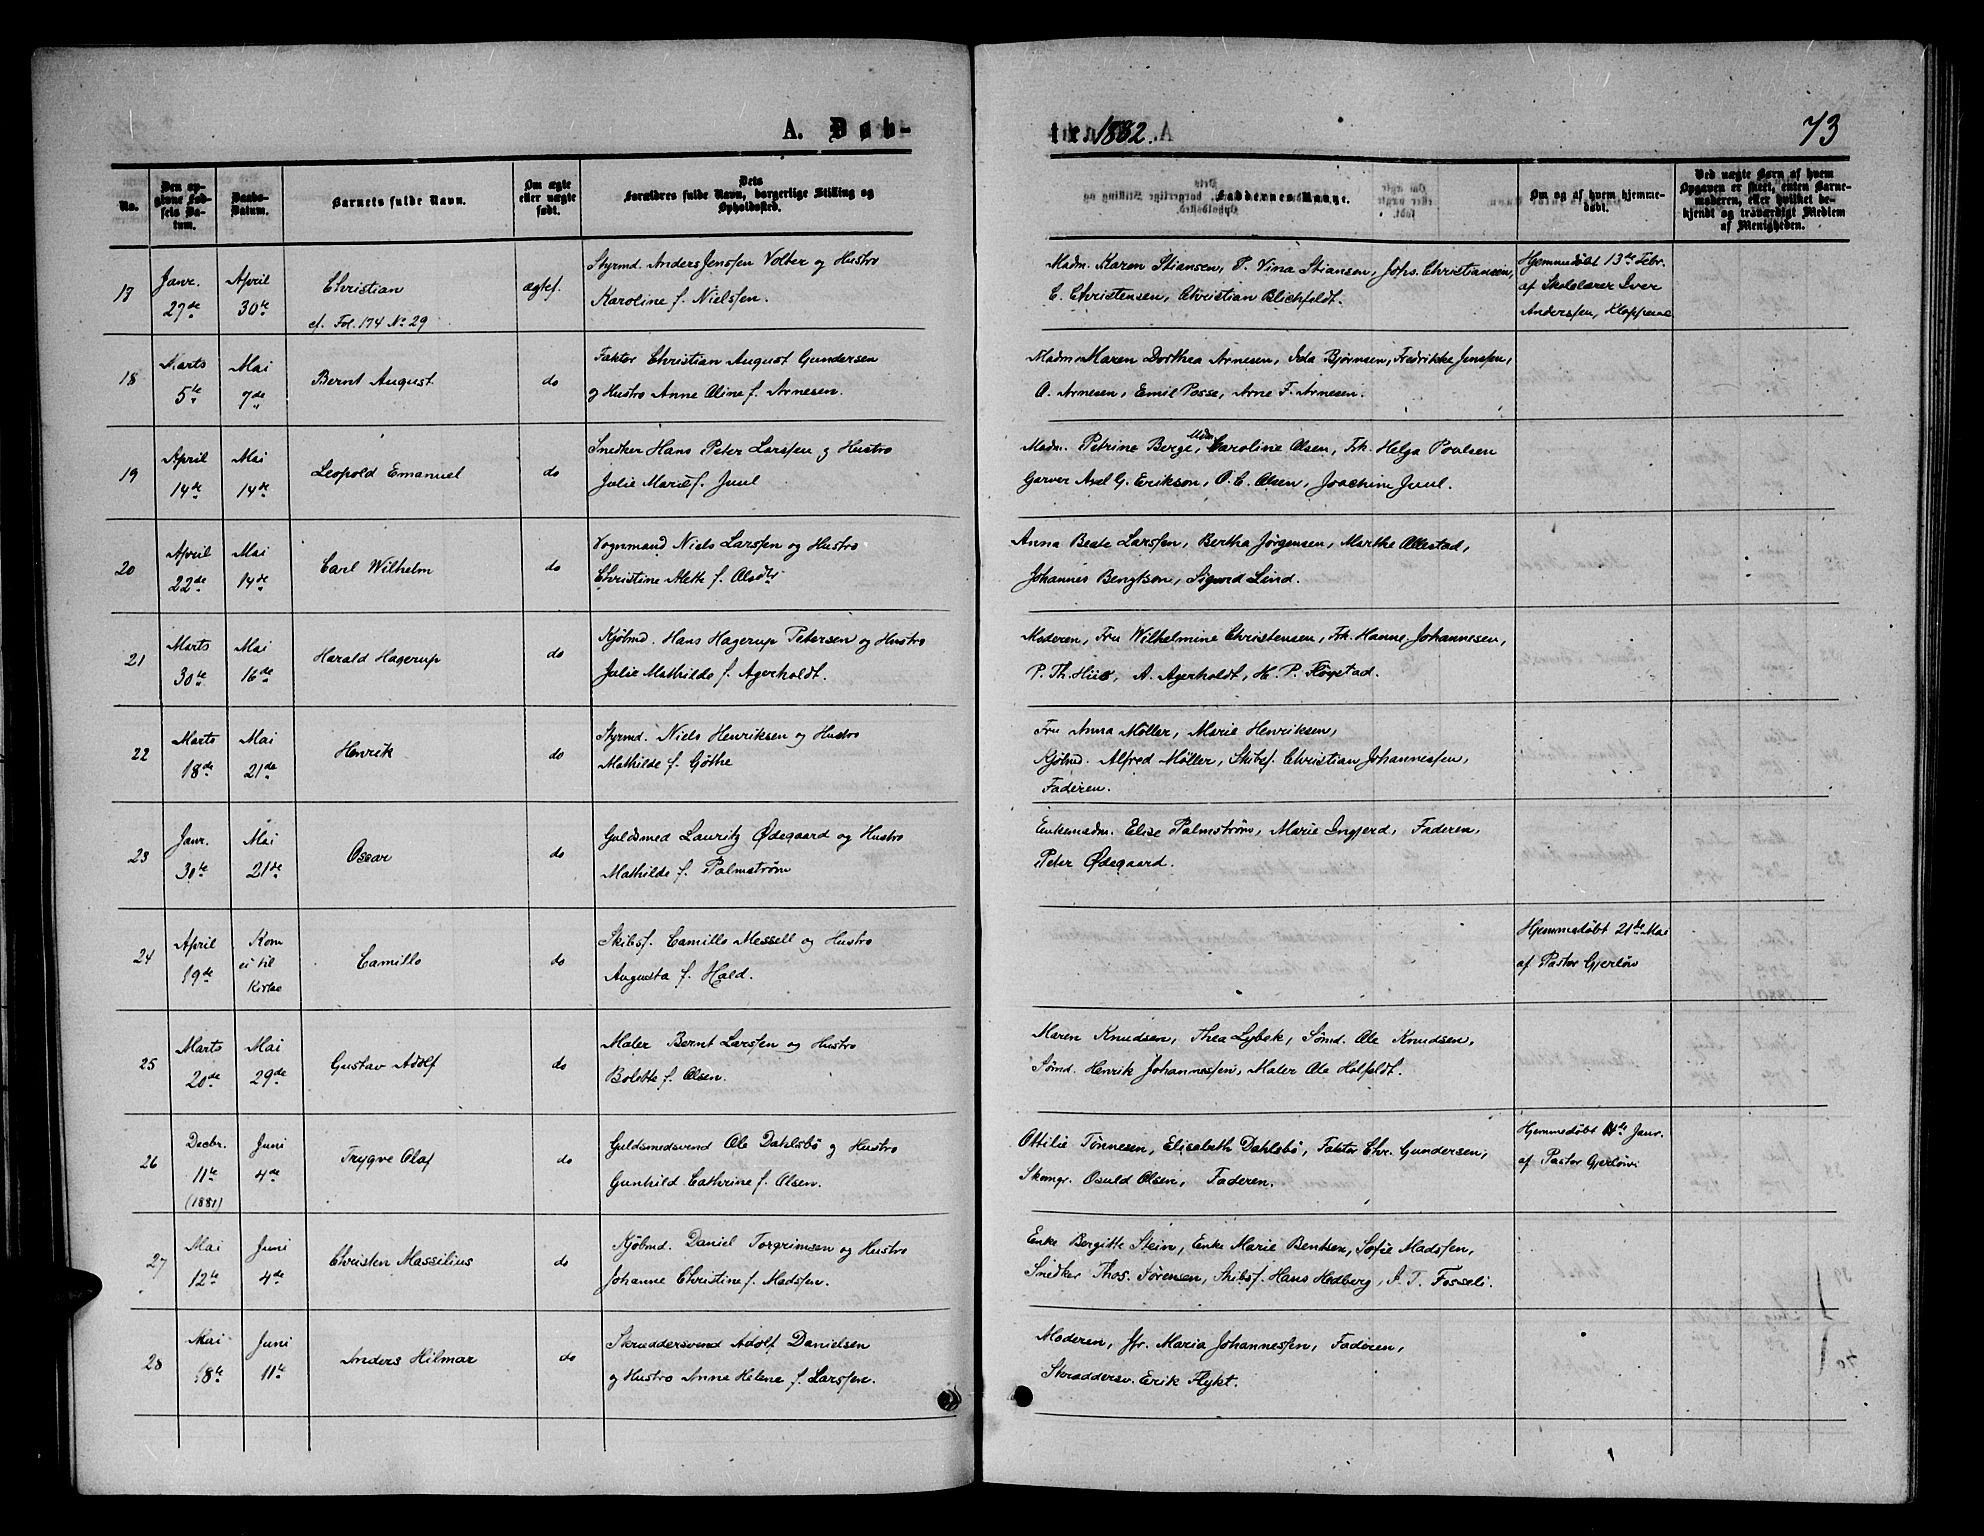 A. Døb-
te 1882.
73
No.
Den op-
givne Fød-
sels Da-
tum.
Daabs-
Datum.
Barnets fulde Navn.
Om ægte
eller uægte
født.
Dets
Forældres fulde Navn, borgerlige Stilling og
Opholdsted.
Faddernes Navne.
Om og af hvem hjemme-
døbt.
Ved uægte Børn af hvem
Opgaven er skeet, enten Barne-
moderen, eller hvilket be-
kjendt og troværdigt Medlem
af Menigheden.
17
Janr.
27de
April
30te
Christian
cf. Fol. 174 No 29
ægtef.
Styrmd. Anders Jenssen Volter og Hustro
Karoline f. Nielssen.
Madm. Karen Stiansen, P. Vina Stiansen, Johs. Christiansen,
C. Christensen, Christian Blichfeldt.
Hjemmedøbt 13de Febr.
af Skolelærer Iver
Anderssen, Kloppene
18
Marts
5te
Mai
7de
Bernt August
do
Faktor Christian August Gundersen
og Hustro Anne Oline f. Arnesen.
Madm. Maren Dorthea Arnesen, Ida Bjørnsen, Fredrikke Jenssen,
O. Arnesen, Emil Posse, Arne F. Arnesen.
19
April
14de
Mai
14de
Leopold Emanuel
do
Snedker Hans Peter Larssen og Hustro
Julie Marie f. Juul
Madm. Petrine Berge, Mdm. Caroline Olsen, Frk. Helga Poulsen
Garver Axel G. Erikson, O. C. Olsen, Joachim Juul.
20
April
22de
Mai
14de
Carl Wilhelm
do
Vognmand Niels Larssen og Hustro
Christine Mette f. Olsdtr
Anna Beate Larssen, Bertha Jørgensen, Marthe Ollestad,
Johannes Bengtson, Sigurd Lind.
21
Marts
30te
Mai
16de
Harald Hagerup
do
Kjøbmd. Hans Hagerup Petersen og Hustro
Julie Mathilde f. Agerholdt.
Moderen, Fru Wilhelmine Christensen, Frk. Hanne Johannesen,
P. Th. Huus, A. Agerholdt, H. P. Føgstad.
22
Marts
18de
Mai
21de
Henrik
do
Styrmd. Niels Henriksen og Hustro
Mathilde f. Göthe
Fru Anna Møller, Marie Henriksen,
Kjøbmd. Alfred Møller, Skibsf. Christian Johannessen,
Faderen.
23
Janr.
30te
Mai
21de
Oscar
do
Guldsmed Lauritz Ødegaard og Hustro
Mathilde f. Palmstrøm
Enkemadm. Elise Palmstrøm, Marie Ingjerd, Faderen,
Peter Ødegaard.
24
April
19de
Kom
ei til
Kirke
Camillo
do
Skibsf. Camillo Messell og Hustro
Augusta f. Hald.
Hjemmedøbt 21de Mai
af Pastor Gjerløw
25
Marts
20de
Mai
29de
Gustav Adolf
do
Maler Bernt Larssen og Hustro
Bolette f. Olsen.
Maren Knudsen, Thea Lybek, Sømd. Ole Knudsen,
Sømd. Henrik Johannessen, Maler Ole Holfeldt.
26
Decbr.
11te
(1881)
Juni
4de
Trygve Olaf
do
Guldsmedsvend Ole Dahlsbö og Hustro
Gunhild Cathrine f. Olsen.
Ottilie Tønnesen, Elisabeth Dahlsbö, Faktor Chr. Gundersen,
Skomgr. Osuld Olsen, Faderen.
Hjemmedøbt 11te Janr.
af Pastor Gjerløw
27
Mai
12te
Juni
4de
Christen Massilius
do
Kjöbmd. Daniel Torgrimsen og Hustro
Johanne Christine f. Madssen.
Enke Bergitte Stein, Enke Marie Bentsen, Sofie Madssen,
Snedker Thos. Sørensen, Skibsf. Hans Hedberg, J. T. Fosseli.
28
Mai
18te
Juni
11te
Anders Hilmar
do
Skræddersvend Adolf Danielsen
og Hustro Anne Helene f. Larssen.
Moderen, Jfr. Maria Johannessen, Faderen,
Skræddersv. Erik Flykt.